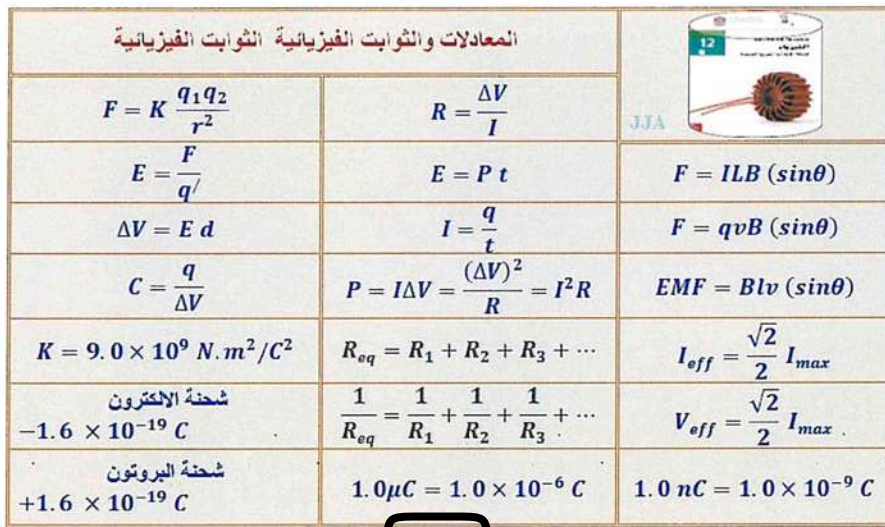 المعادلات والثوابت الفيزيائية الثوابت الفيزيائية
12
JJA
F = K \frac{q_1 q_2}{r^2}
R = \frac{ΔV}{I}
E = \frac{F}{q^/}
E = P t
F = ILB (sinθ)
ΔV = E d
I = \frac{q}{t}
F = qvB (sinθ)
C = \frac{q}{ΔV}
P = IΔV = \frac{(ΔV)^2}{R} = I^2 R
EMF = Blv (sinθ)
K = 9.0 × 10^9 N.m^2/C^2
R_{eq} = R_1 + R_2 + R_3 + ⋯
I_{eff} = \frac{\sqrt{2}}{2} I_{max}
شحنة الالكترون
−1.6 × 10^{−19} C
\frac{1}{R_{eq}} = \frac{1}{R_1} + \frac{1}{R_2} + \frac{1}{R_3} + ⋯
V_{eff} = \frac{\sqrt{2}}{2} I_{max}
شحنة البروتون
+1.6 × 10^{−19} C
1.0μC = 1.0 × 10^{−6} C
1.0 nC = 1.0 × 10^{−9} C